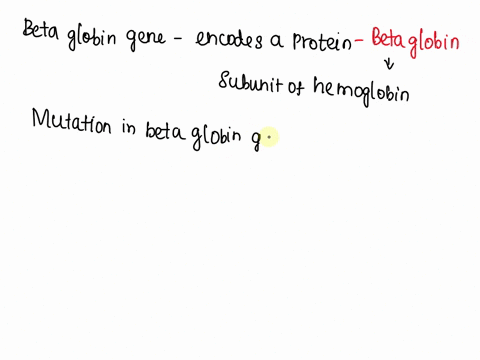 Beta globin gene - encodes a protein - Beta globin
↓
Subunit of hemoglobin
Mutation in beta globin g